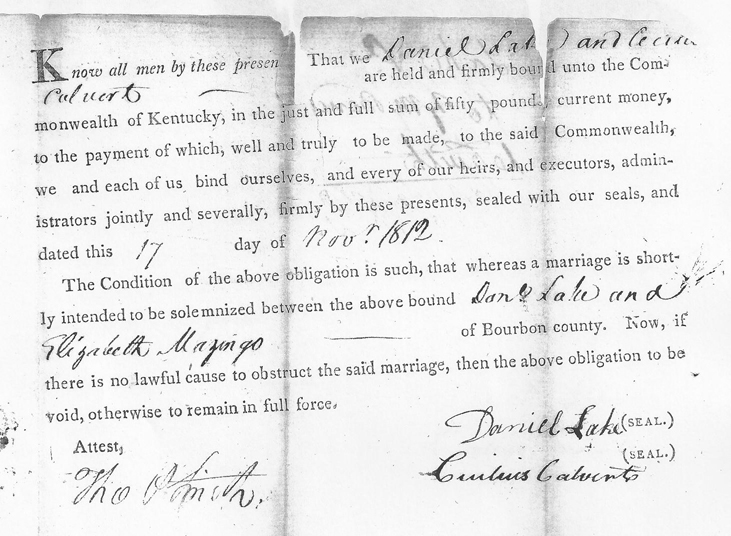 Know all men by these presen That we Daniel Lake and
Calvert are held and firmly bound unto the Com-
monwealth of Kentucky, in the just and full sum of fifty pounds current money,
to the payment of which, well and truly to be made, to the said Commonwealth,
we and each of us bind ourselves, and every of our heirs, and executors, admin-
istrators jointly and severally, firmly by these presents, sealed with our seals, and
dated this 17 day of Novr. 1812.
The Condition of the above obligation is such, that whereas a marriage is short-
ly intended to be solemnized between the above bound Danl Lake and
Elizabeth Mazingo of Bourbon county. Now, if
there is no lawful cause to obstruct the said marriage, then the above obligation to be
void, otherwise to remain in full force.
Attest,
Daniel Lake (SEAL.)
Calvert (SEAL.)
Tho P Smith,